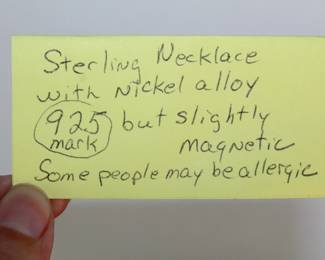 Sterling Necklace
with Nickel alloy
925 but slightly
mark magnetic
Some people may be allergic